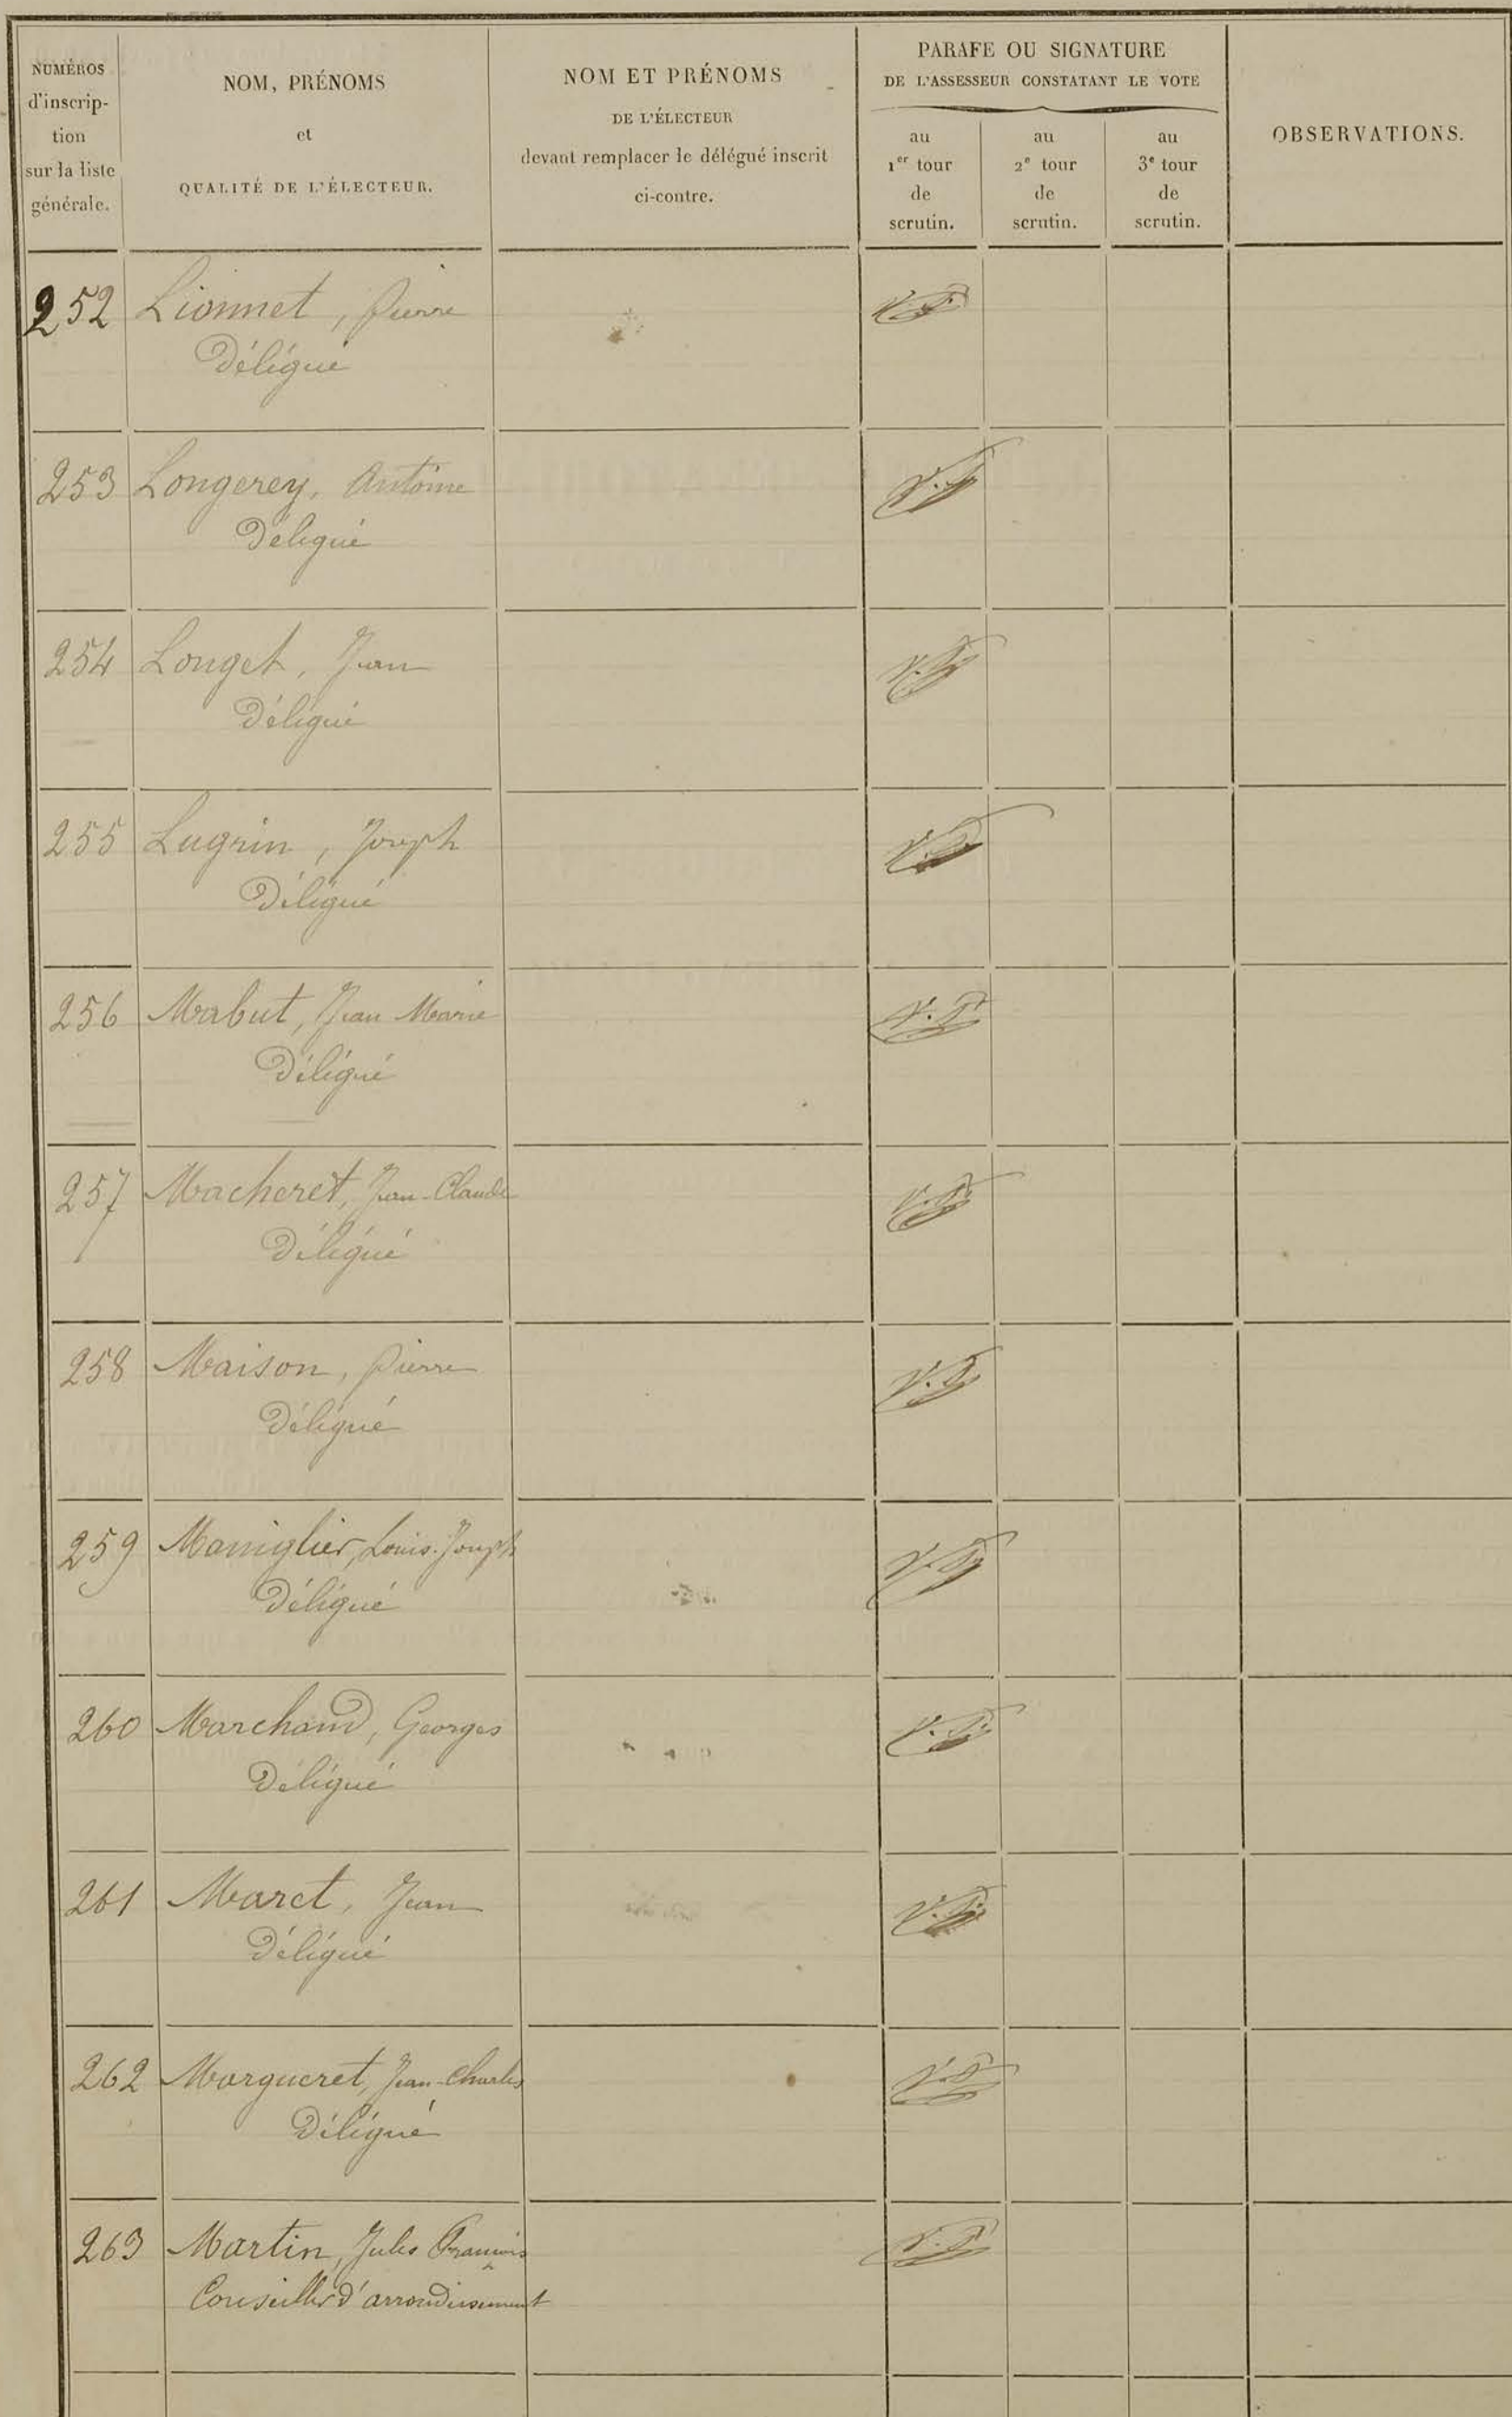 NUMÉROS
d'inscrip-
tion
sur la liste
générale.
NOM, PRÉNOMS
et
QUALITÉ DE L'ÉLECTEUR.
NOM ET PRÉNOMS
DE L'ÉLECTEUR
devant remplacer le délégué inscrit
ci-contre.
PARAFE OU SIGNATURE
DE L'ASSESSEUR CONSTATANT LE VOTE
au
1er tour
de
scrutin.
au
2e tour
de
scrutin.
au
3e tour
de
scrutin.
OBSERVATIONS.
252 Lionnet, Pierre
Délégué
253 Longerey, Antoine
Délégué
254 Longet, Jean
Délégué
255 Lugrin, Joseph
Délégué
256 Mabut, Jean Marie
Délégué
257 Macheret, Jean-Claude
Délégué
258 Maison, Pierre
Délégué
259 Maniglier, Louis-Joseph
Délégué
260 Marchand, Georges
Délégué
261 Maret, Jean
Délégué
262 Margueret, Jean-Charles
Délégué
263 Martin, Jules François
Conseiller d'arrondissement